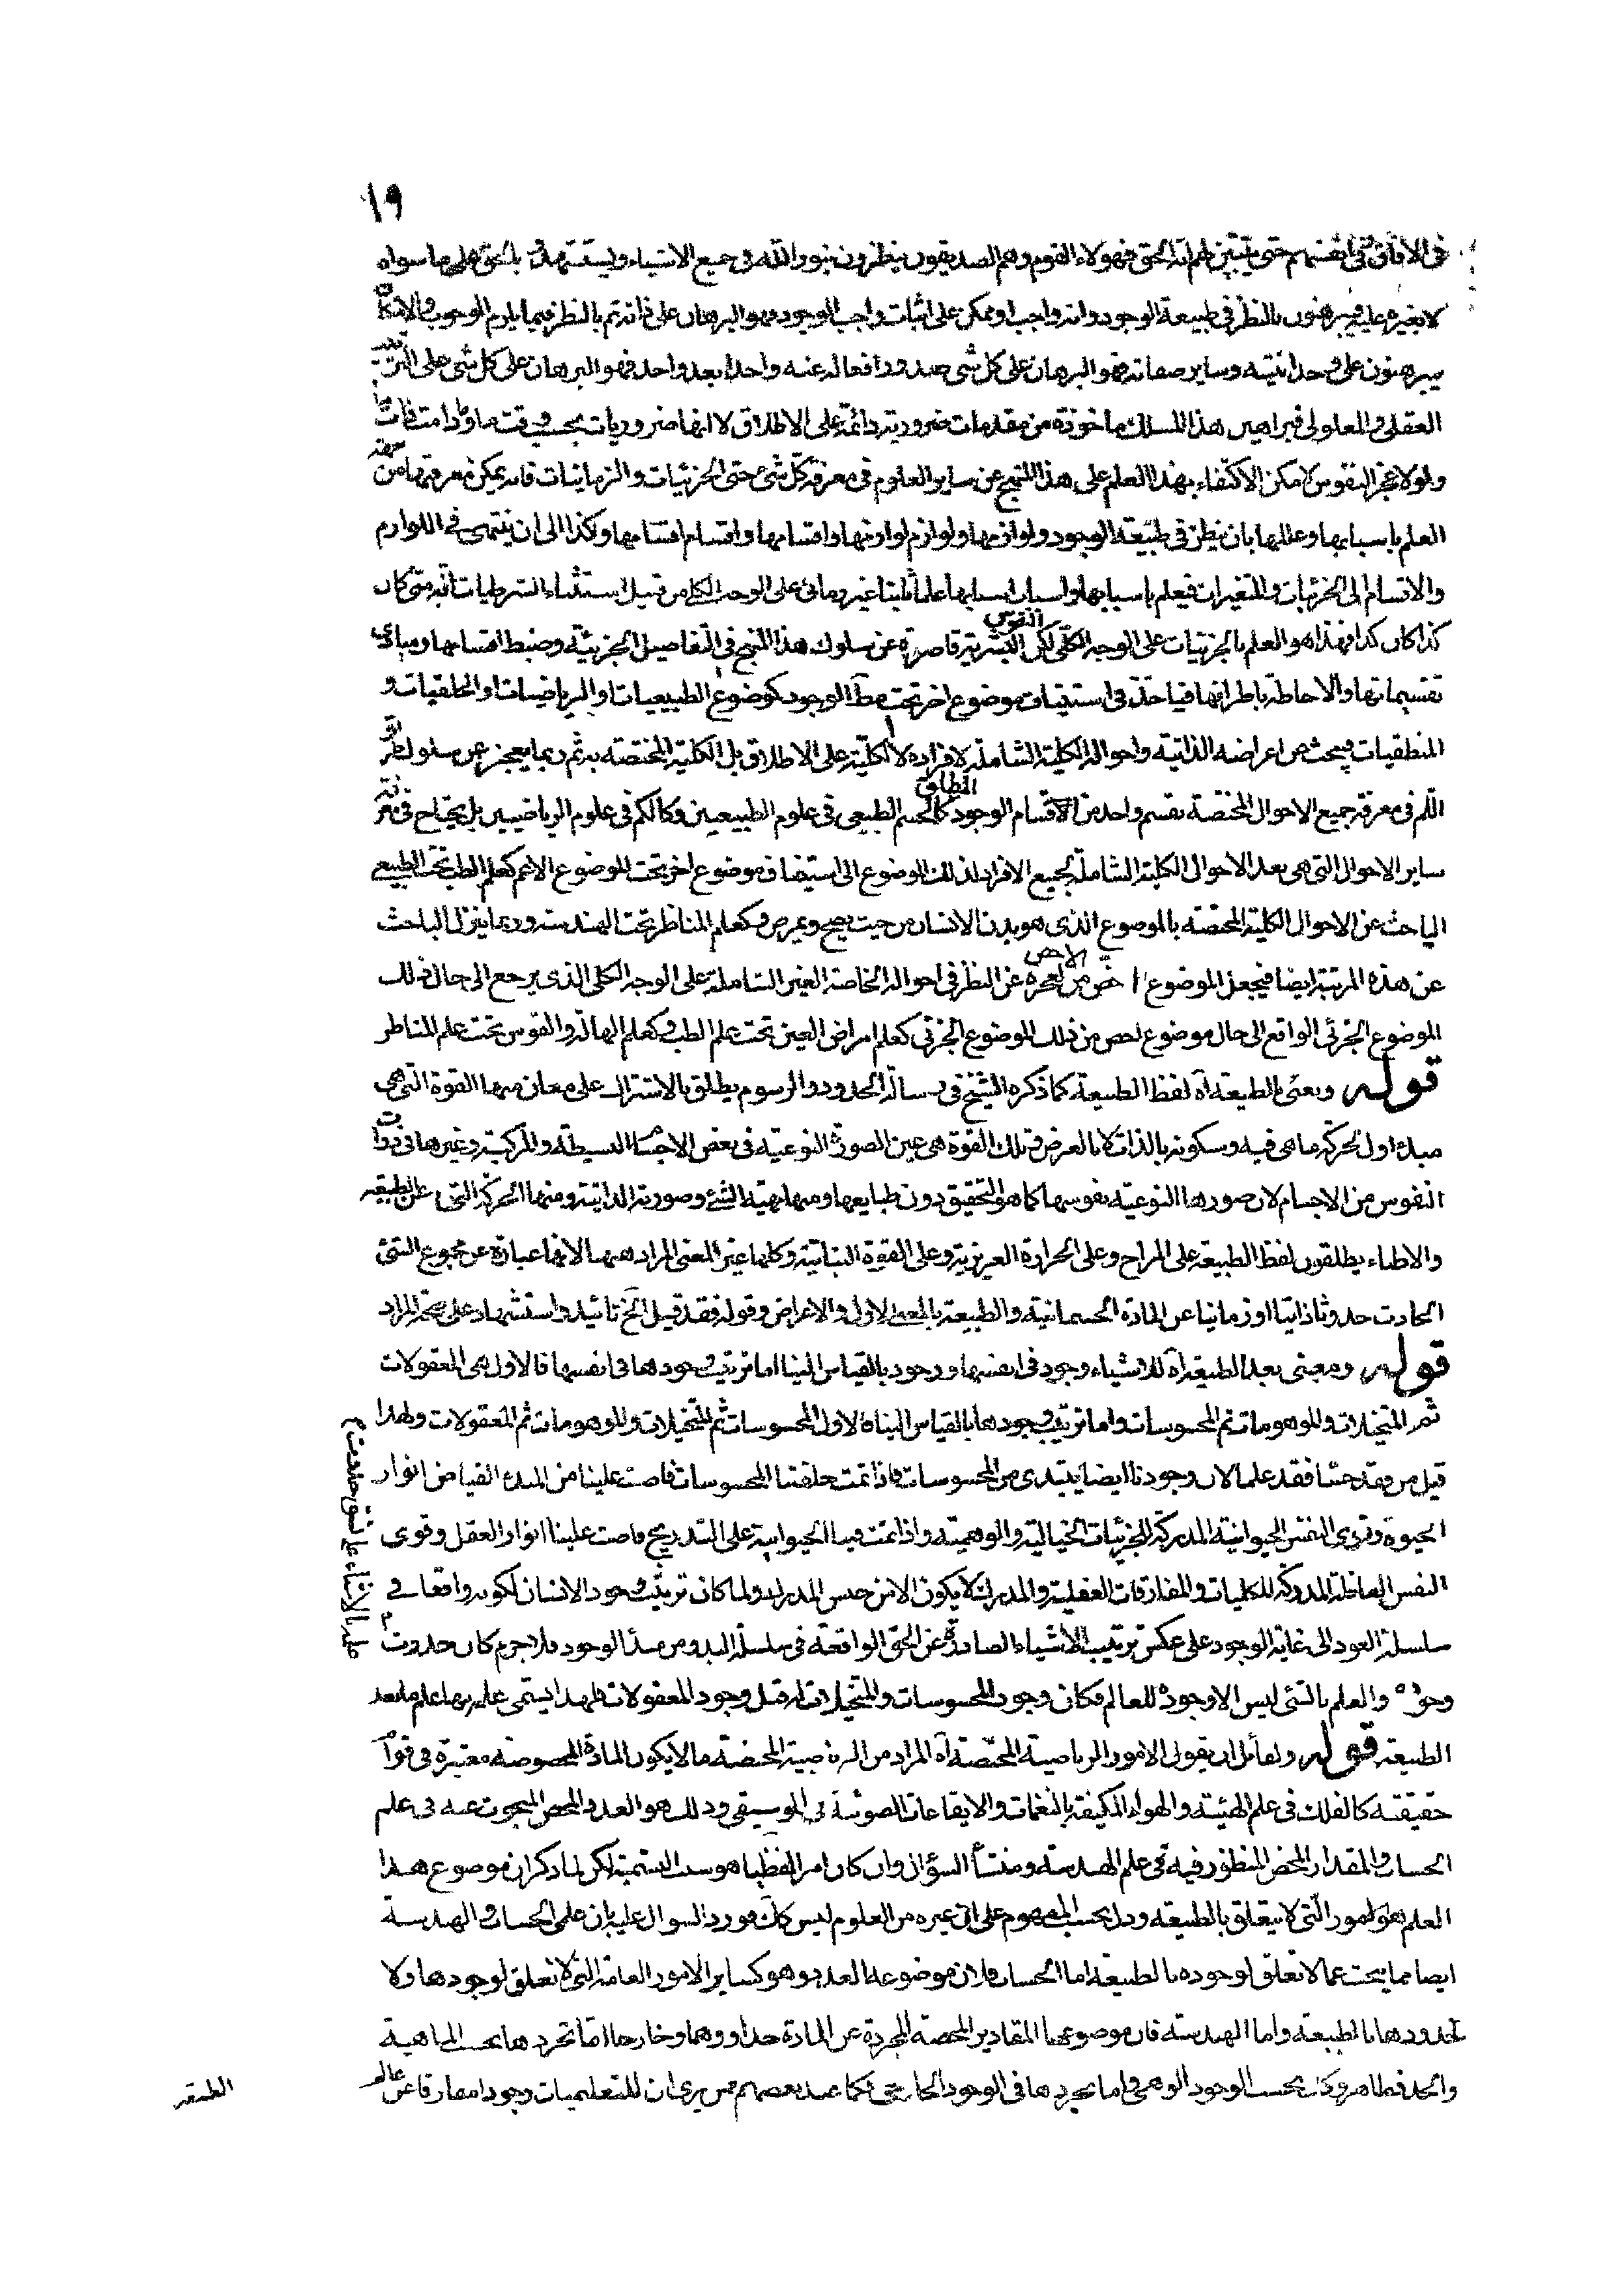 ١٩
في الافاق وفي انفسهم حتى يتبين لهم انه الحق فهولاء القوم وهم الصديقون ينظرون بنور الله في جميع الاشياء ويستشهدون بالحق على ما سواه
لا بغيره عليه فيبرهنون بالنظر في طبيعة الوجود وانه واجب او ممكن على اثبات واجب الوجود وهو البرهان على ذاته ثم بالنظر فيما يلزم الوجوب والامكان
يبرهنون على وحدانيته وساير صفاته فهو البرهان على كل شي صدور افعاله عنه واحدا بعد واحد فهو البرهان على كل شي على الترتيب
العقلي والمعلولي فبراهين هذا المسلك ماخوذة من مقدمات ضرورية دائمة على الاطلاق لا انها ضروريات بحسب وقت ما او ما دامت ذات ما
ولولا عجز النفوس لامكن الاكتفاء بهذا العلم على هذا المنهج عن ساير العلوم في معرفة كل شيء حتى الجزئيات والزمانيات فانه يمكن معرفتها من جهة
العلم باسبابها وعللها بان ينظر في طبيعة الوجود ولوازمها ولوازم لوازمها واقسامها واقسام اقسامها وهكذا الى ان ينتهى في اللوازم
والاقسام الى الجزئيات والمتغيرات فيعلم باسبابها واسباب اسبابها علما ثابتا غير زماني على الوجه الكلي من قبيل استثناء الشرطيات انه متى كان
كذا كان كذا فهذا هو العلم بالجزئيات على الوجه الكلي لكن النفوس البشرية قاصرة عن سلوك هذا المنهج في التفاصيل الجزئية وضبط اقسامها ومبادي
تقسيماتها والاحاطة باطرافها فياخذ في استيناف موضوع اخر تحت مطلق الوجود كموضوع الطبيعيات او الرياضيات او الخلقيات و
المنطقيات ويبحث عن اعراضه الذاتية واحواله الكلية الشاملة لافراده لا الكلية على الاطلاق بل الكلية المختصة به ثم ربما يعجز عن سلوك طريق
اللم في معرفة جميع الاحوال المختصة بقسم واحد من الاقسام الوجود المطلق كالجسم الطبيعي في علوم الطبيعيين وكالكم في علوم الرياضيين بل يحتاج في معرفة
ساير الاحوال التي هي بعد الاحوال الكلية الشاملة لجميع الافراد لذلك الموضوع الى استيناف موضوع اخر تحت الموضوع الاعم كعلم الطب تحت الطبيعي
الباحث عن الاحوال الكلية المختصة بالموضوع الذي هو بدن الانسان من حيث يصح ويمرض وكعلم المناظر تحت الهندسة وربما ينزل الباحث
عن هذه المرتبة ايضا فيجعل الموضوع اخص من الاخص لعجزه عن النظر في احواله الخاصة الغير الشاملة على الوجه الكلي الذي يرجع الى حال ذلك
الموضوع الجزئي الواقع الى حال موضوع اخص من ذلك الموضوع الجزئي كعلم امراض العين تحت علم الطب وكعلم الهالة والقوس تحت علم المناظر
قوله ويعني بالطبيعة آه لفظ الطبيعة كما ذكره الشيخ في رسالة الحدود والرسوم يطلق بالاشتراك على معان منها القوة التي هي
مبدء اول لحركة ما هي فيه وسكونه بالذات لا بالعرض وتلك القوة هي عين الصورة النوعية في بعض الاجسام البسيطة والمركبة وغيرها في ذوات
النفوس من الاجسام لان صورها النوعية نفوسها كما هو التحقيق دون طبايعها ومنها مهية الشيء وصورته الذاتية ومنها الحركة التي عن الطبيعة
والاطباء يطلقون لفظ الطبيعة على المزاج وعلى الحرارة الغريزية وعلى القوة النباتية وكلها غير المعنى المراد هيهنا لانها عبارة عن مجموع الشيء
الحادث حدوثا ذاتيا او زمانيا عن المادة الجسمانية والطبيعة بالمعنى الاول والاعراض وقوله فقد قيل الخ تائيد واستشهاد على صحة المراد
قوله ومعنى بعد الطبيعة آه للاشياء وجود في انفسها ووجود بالقياس الينا اما ترتيب وجودها في انفسها فالاول هي المعقولات
ثم المتخيلات والموهومات ثم المحسوسات واما ترتيب وجودها بالقياس الينا فالاول المحسوسات ثم المتخيلات والموهومات ثم المعقولات ولهذا
قيل من فقد حسا فقد علما لان وجودنا ايضا يبتدي من المحسوسات فاذا تمت خلقتنا المحسوسات فاضت علينا من المبدء الفياض انوار
الحيوة وقوى النفس الحيوانية المدركة للجزئيات الخيالية والوهمية واذا تمت فينا الحيوانية على التدريج فاضت علينا انوار العقل وقوى
النفس العاقلة المدركة للكليات والمفارقات العقلية والمدرك لا يكون الا من جنس المدرك ولما كان ترتيب وجود الانسان لكونه واقعا في
سلسلة العود الى غاية الوجود على عكس ترتيب الاشياء الصادرة عن الحق الواقعة في سلسلة البدو من مبدأ الوجود فلا جرم كان حدوث
علمه بالاشياء على نسق حدوث
وجوده والعلم بالشيء ليس الا وجوده للعالم فكان وجود المحسوسات والمتخيلات له قبل وجود المعقولات فلهذا يسمى علمه بها علم ما بعد
الطبيعة قوله ولقائل ان يقول الامور الرياضية المحضة آه المراد من الرياضية المحضة ما لا يكون المادة المخصوصة معتبرة في قوام
حقيقته كالفلك في علم الهيئة والهواء المكيفة بالنغمات والايقاعات الصوتية في الموسيقى وذلك هو العدد المحض المبحوث عنه في علم
الحساب والمقدار المحض المنظور فيه في علم الهندسة ومنشأ السؤال وان كان امرا لفظيا هو سبب التسمية لكن لما ذكر ان موضوع هذا
العلم هو امور التي لا يتعلق بالطبيعة ودل بحسب المفهوم على ان غيره من العلوم ليس كذلك مورد السوال عليه بان علمي الحساب والهندسة
ايضا مما يبحث عما لا تعلق لوجوده بالطبيعة اما الحساب فلان موضوعه العدد وهو كساير الامور العامة التي لا تعلق لوجودها ولا
لحدودها بالطبيعة واما الهندسة فان موضوعها المقادير المحضة المجردة عن المادة حدا ووهما وخارجا اما تجردها بحسب الماهية
والحد فظاهر وكذا بحسب الوجود الوهمي واما تجردها في الوجود الخارجي فكما عند بعضهم ممن يرى ان للتعليميات وجودا مفارقا عن عالم
الطبيعة